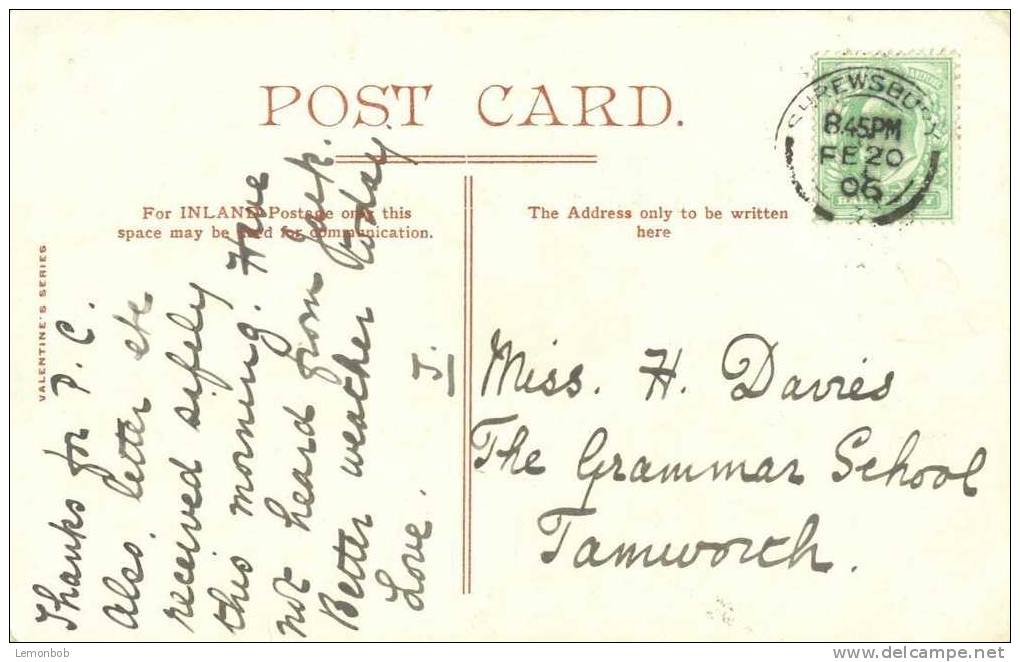 POST CARD.
For INLAND Postage only this
space may be used for communication.
The Address only to be written
here
VALENTINE'S SERIES
SHREWSBURY
8.45PM
FE 20
06
Thanks for P. C.
also. letter etc
received safely
this morning. Have
not heard from
Better weather today.
Love. J.
Miss. H. Davies
The Grammar School
Tamworth.
Lemonbob
www.delcampe.net